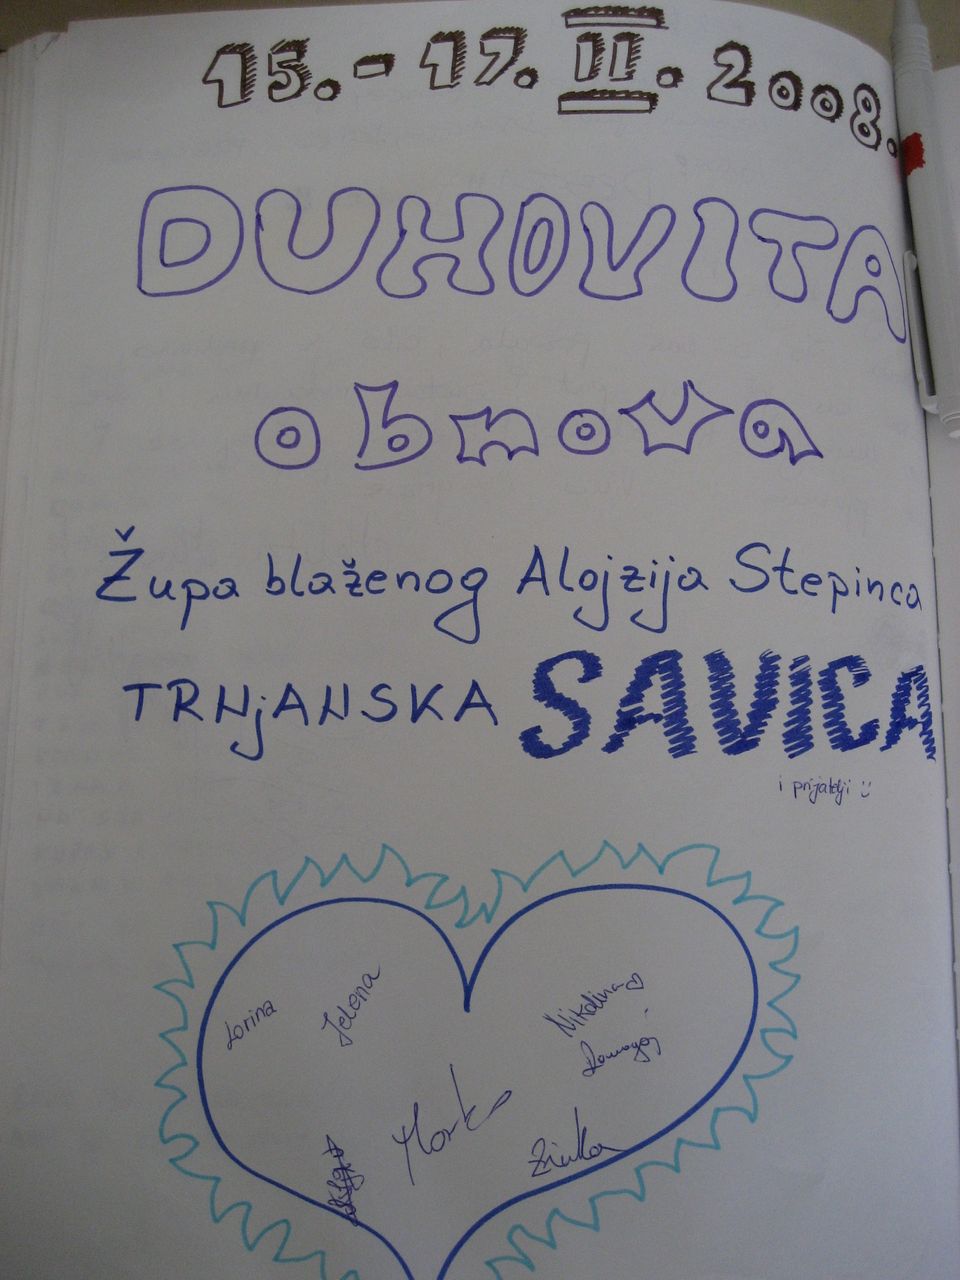 15.-17. II. 2008.
DUHOVITA
obnova
Župa blaženog Alojzija Stepinca
TRNjANSKA SAVICA
i prijatelji :)
Lorina
Jelena
Nikolina
Domagoj
Marko
Zrinka